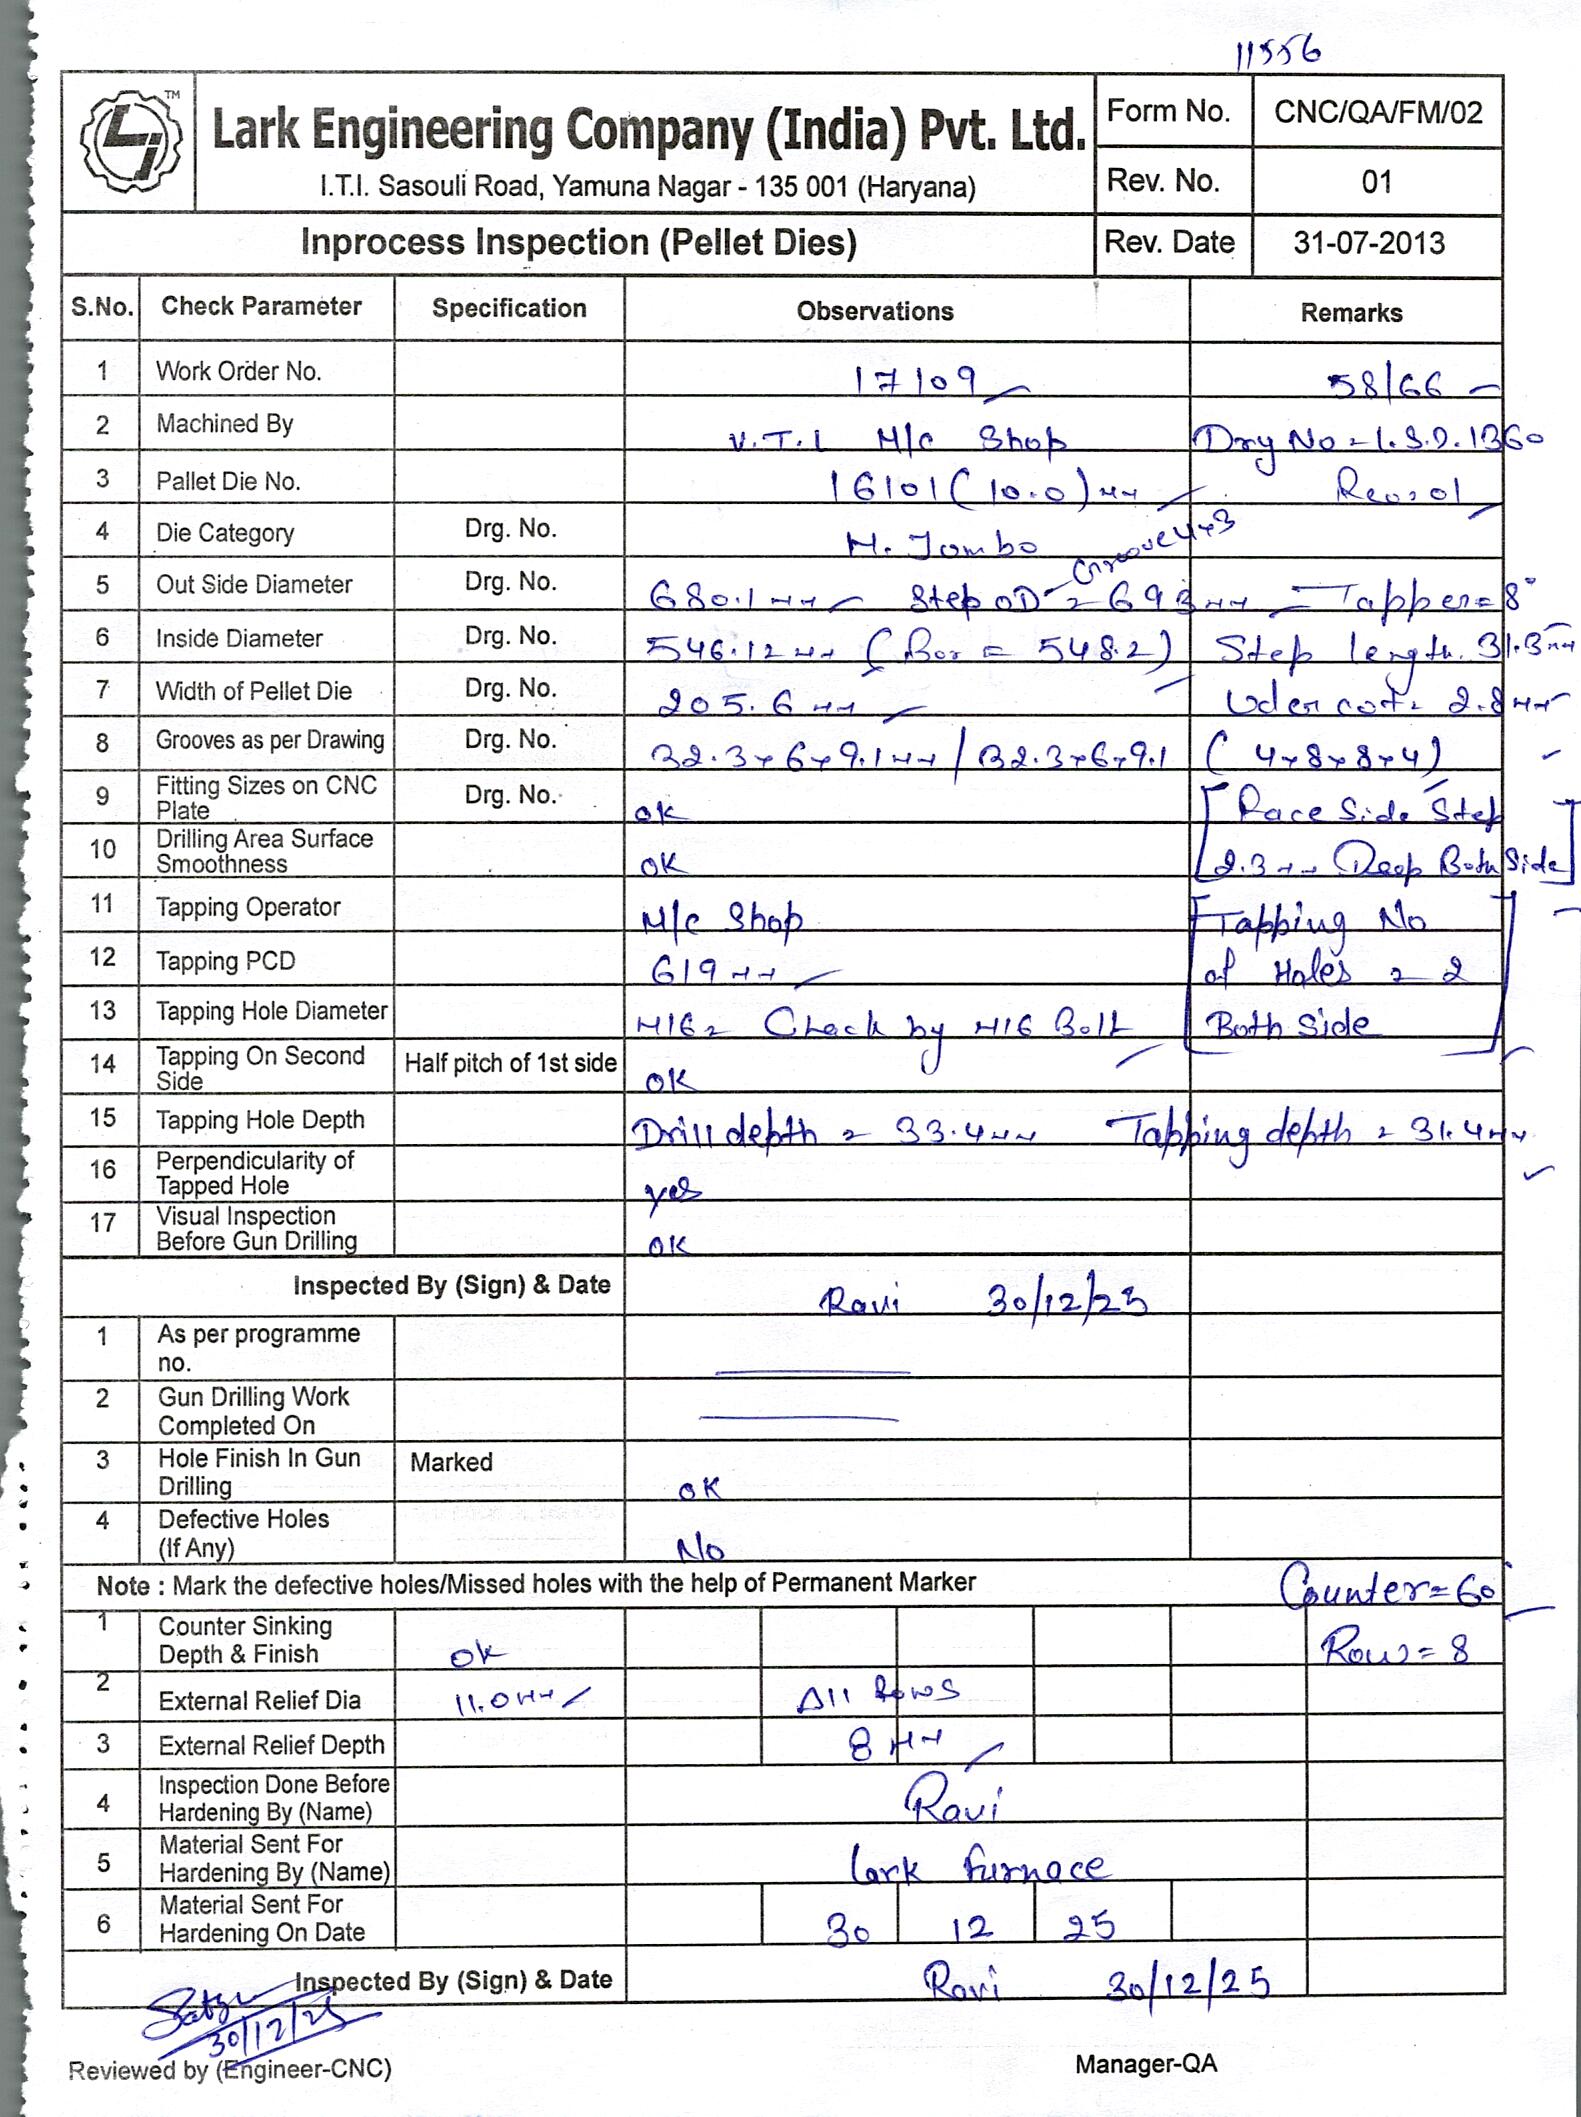 11556
TM
Lark Engineering Company (India) Pvt. Ltd.
I.T.I. Sasouli Road, Yamuna Nagar - 135 001 (Haryana)
Form No. CNC/QA/FM/02
Rev. No. 01
Inprocess Inspection (Pellet Dies) Rev. Date 31-07-2013
S.No. Check Parameter Specification Observations Remarks
1 Work Order No. 17109 58/66
2 Machined By V.T.L M/c Shop Drg No = L.S.D. 1360
3 Pallet Die No. 16101 (10.0) mm Rev=01
4 Die Category Drg. No. M. Jombo
Groove 4x3
5 Out Side Diameter Drg. No. 680.1 mm Step OD = 693 mm Tapper = 8°
6 Inside Diameter Drg. No. 546.12 mm (Bor = 548.2) Step length. 31.3mm
7 Width of Pellet Die Drg. No. 205.6 mm Uder cot = 2.8mm
8 Grooves as per Drawing Drg. No. 32.3x6x9.1mm / 32.3x6x9.1 (4x8x8x4)
9 Fitting Sizes on CNC Plate Drg. No. ok [Race Side Step
10 Drilling Area Surface Smoothness OK 2.3 mm Deep Both Side]
11 Tapping Operator M/c Shop [Tapping No
12 Tapping PCD 619 mm of Holes = 2
13 Tapping Hole Diameter M16 = Check by M16 Bolt Both Side]
14 Tapping On Second Side Half pitch of 1st side OK
15 Tapping Hole Depth Drill depth = 33.4mm Tapping depth = 31.4mm
16 Perpendicularity of Tapped Hole yes
17 Visual Inspection Before Gun Drilling OK
Inspected By (Sign) & Date Ravi 30/12/25
1 As per programme no.
2 Gun Drilling Work Completed On
3 Hole Finish In Gun Drilling Marked OK
4 Defective Holes (If Any) No
Note : Mark the defective holes/Missed holes with the help of Permanent Marker Counter = 60
1 Counter Sinking Depth & Finish ok Row = 8
2 External Relief Dia 11.0mm All Rows
3 External Relief Depth 8 mm
4 Inspection Done Before Hardening By (Name) Ravi
5 Material Sent For Hardening By (Name) Lark Furnace
6 Material Sent For Hardening On Date 30 12 25
Inspected By (Sign) & Date Ravi 30/12/25
30/12/25
Reviewed by (Engineer-CNC) Manager-QA